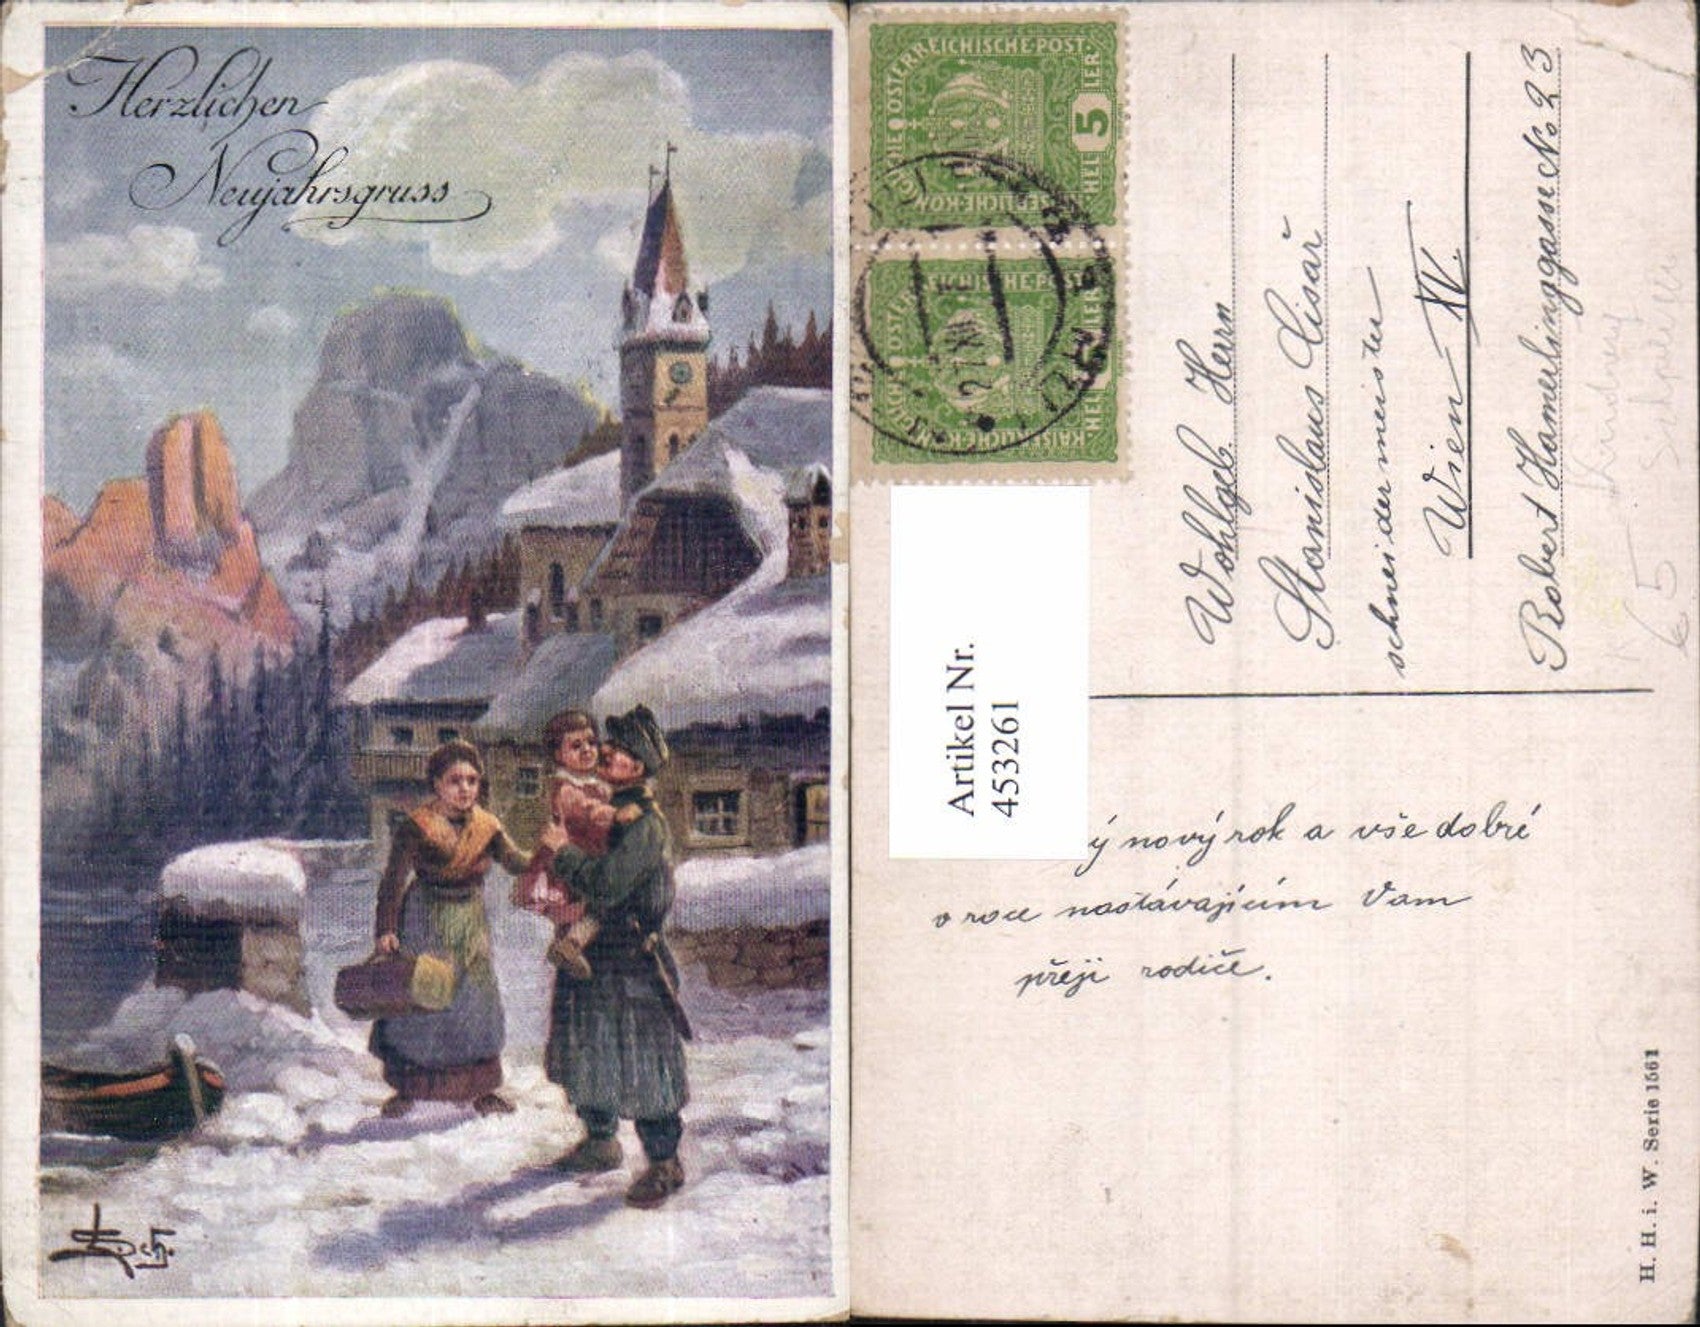 Herzlichen
Neujahrsgruss
KAISERLICHE KÖNIGLICHE ÖSTERREICHISCHE POST
5 HELLER
HELLER
Wohlgeb. Herrn
Stanislaus Cisař
schneidermeister
Wien XV.
Robert Hamerlinggasse No 23
Artikel Nr.
453261
ý nový rok a vše dobré
o roce nastávajícím Vam
přeji rodiče.
H. H. i. W. Serie 1561